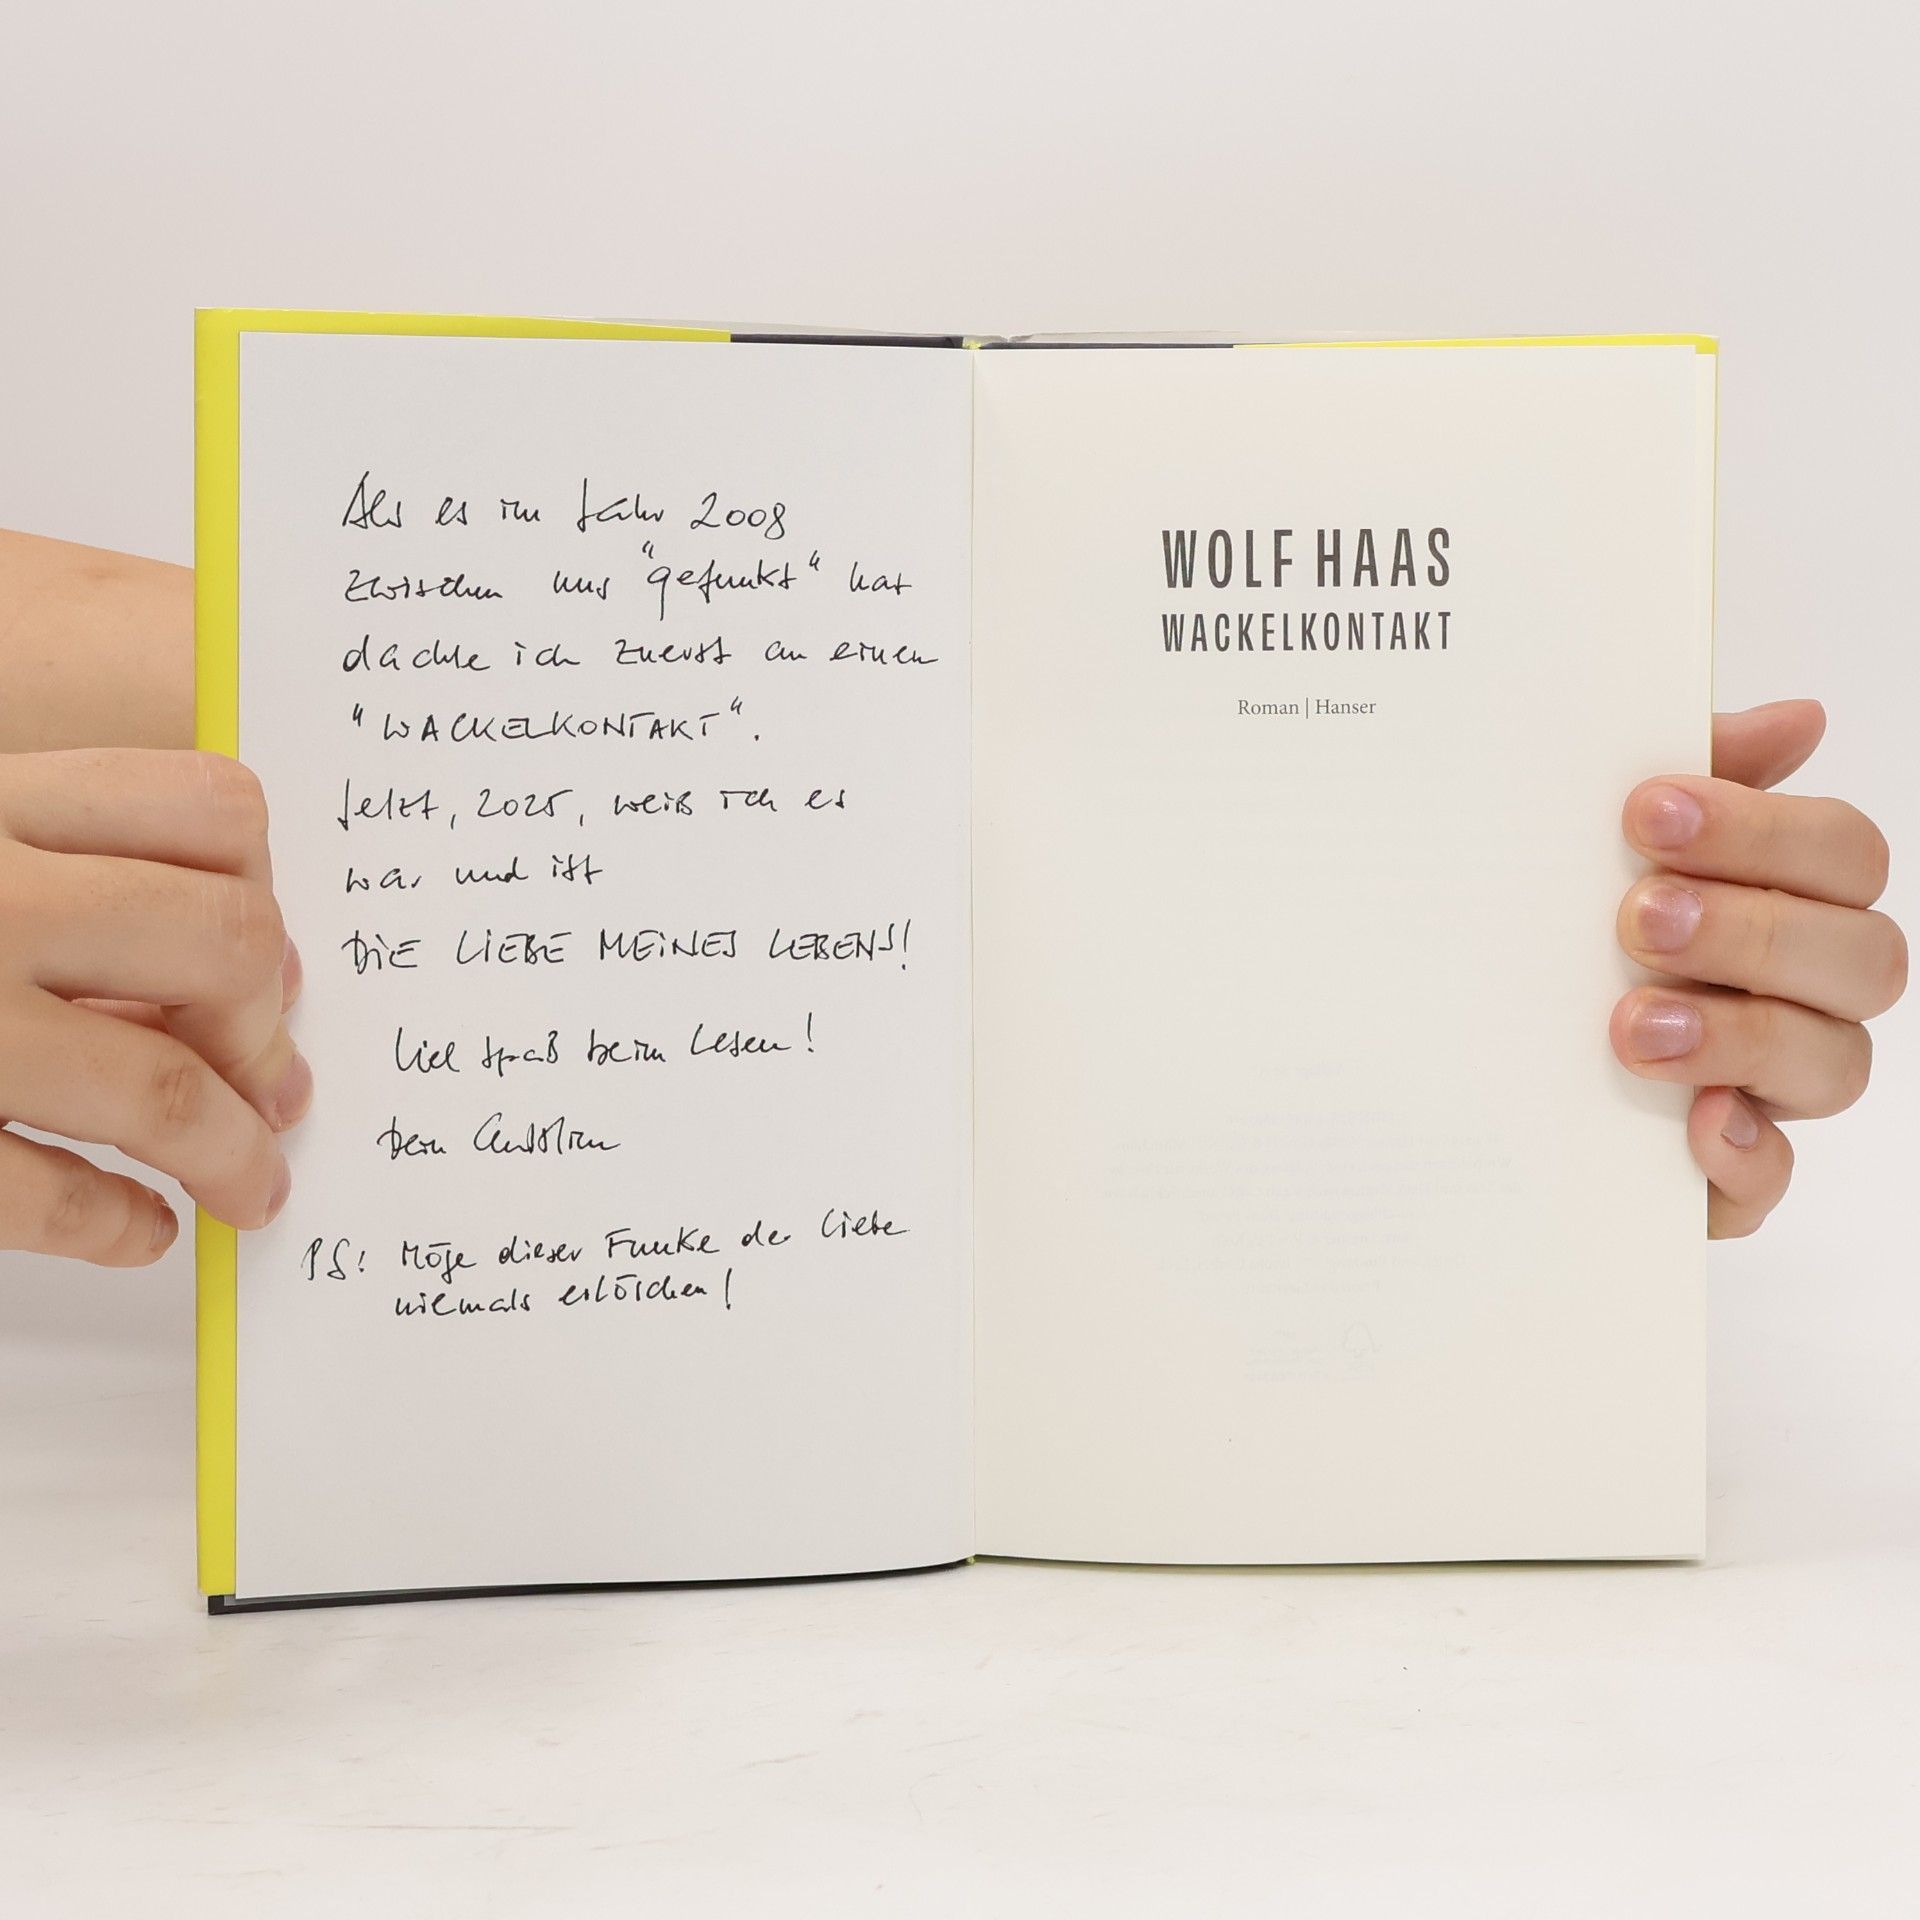 Als es im Jahr 2008
zwischen uns "gefunkt" hat
dachte ich zuerst an einen
"WACKELKONTAKT".
Jetzt, 2025, weiß ich es
war und ist
DIE LIEBE MEINES LEBENS!
Viel Spaß beim Lesen!
Dein
PS: Möge dieser Funke der Liebe
niemals erlöschen!
WOLF HAAS
WACKELKONTAKT
Roman | Hanser